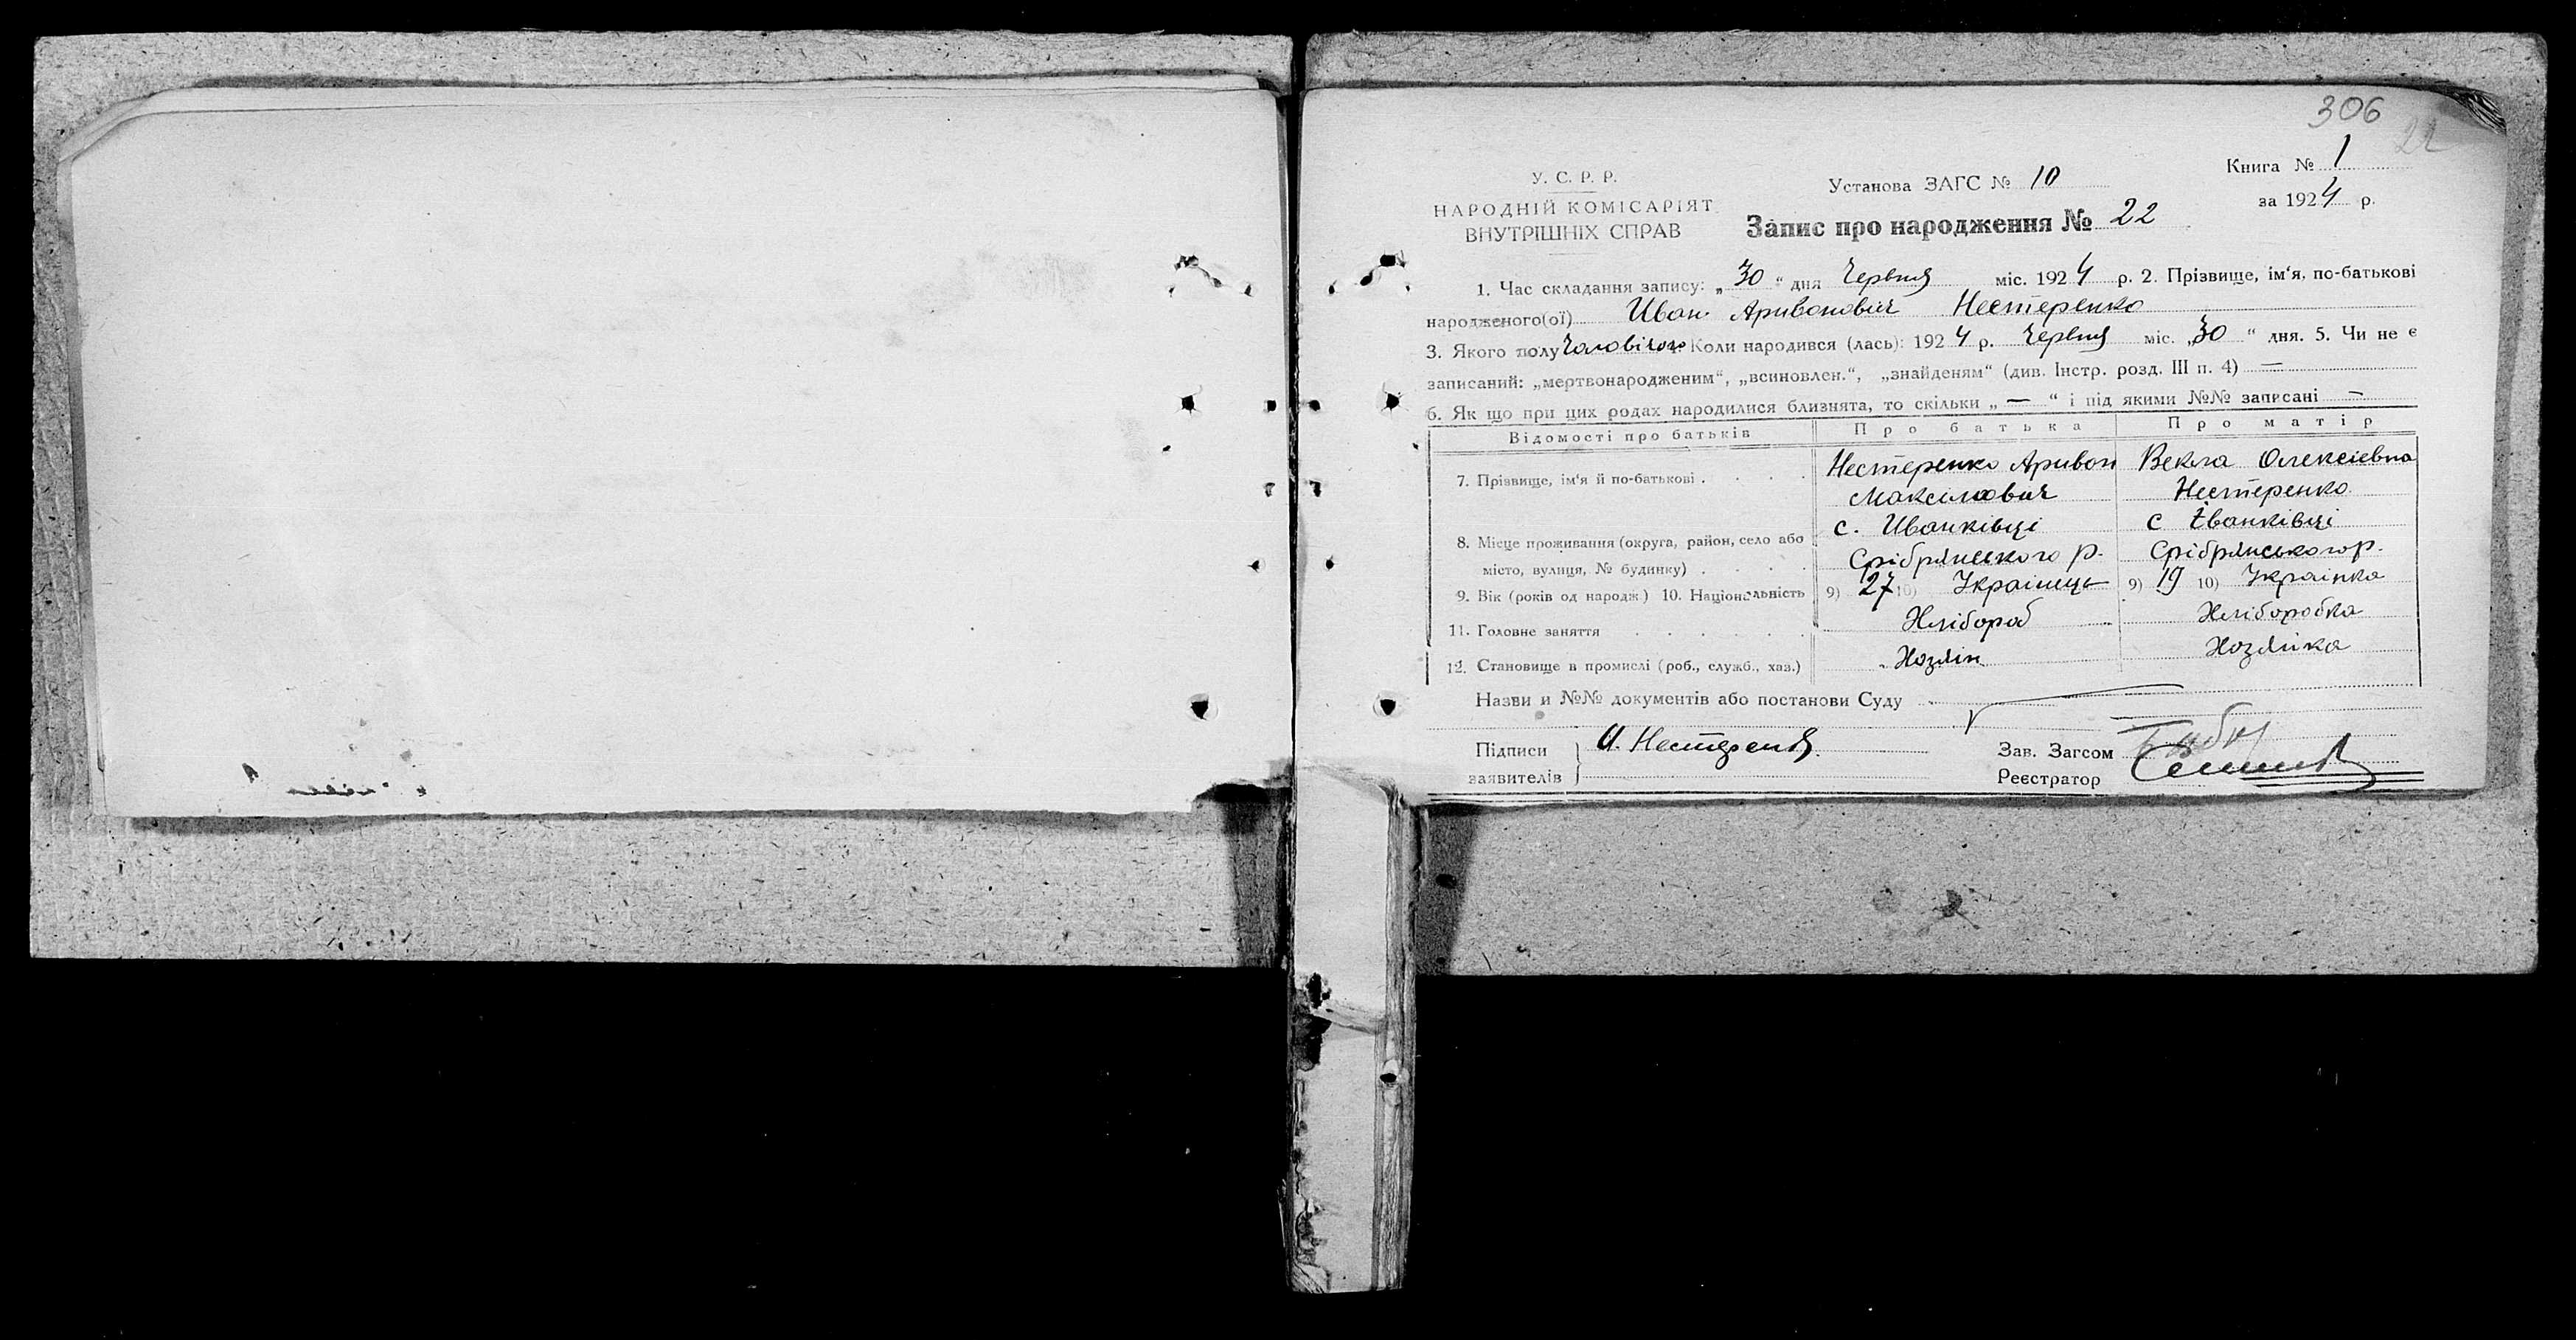 306
22
У. С. Р. Р.
НАРОДНІЙ КОМІСАРІЯТ
ВНУТРІШНІХ СПРАВ
Установа ЗАГС № 10
Запис про народження № 22
Книга № 1
за 1924 р.
1. Час складання запису: „30“ дня Червня міс. 1924 р. 2. Прізвище, ім'я, по-батькові
народженого(ої) Иван Аривонович Нестеренко
3. Якого полу Чоловічого Коли народився (лась): 1924 р. Червня міс. „30“ дня. 5. Чи не є
записаний: „мертвонародженим“, „всиновлен.“, „знайденям“ (див. Інстр. розд. III п. 4) —
6. Як що при цих родах народилися близнята, то скільки „—“ і під якими №№ записані —
Відомості про батьків Про батька Про матір
7. Прізвище, ім'я й по-батькові . . . . Нестеренко Аривон Векла Олексіевна
Максимович Нестеренко
с. Иванківці с Іванківці
8. Місце проживання (округа, район, село або
Срібрянського р. Срібрянського р.
місто, вулиця, № будинку) . . . .
9. Вік (років од народж.) 10. Національність 9) 27 10) Украінець 9) 19 10) Украінка
11. Головне заняття . . . . . . Хлібороб Хліборобка
12. Становище в промислі (роб., служб., хаз.) Хозяін Хозяйка
Назви и №№ документів або постанови Суду
Підписи И. Нестеренко
заявителів
Зав. Загсом
Реєстратор